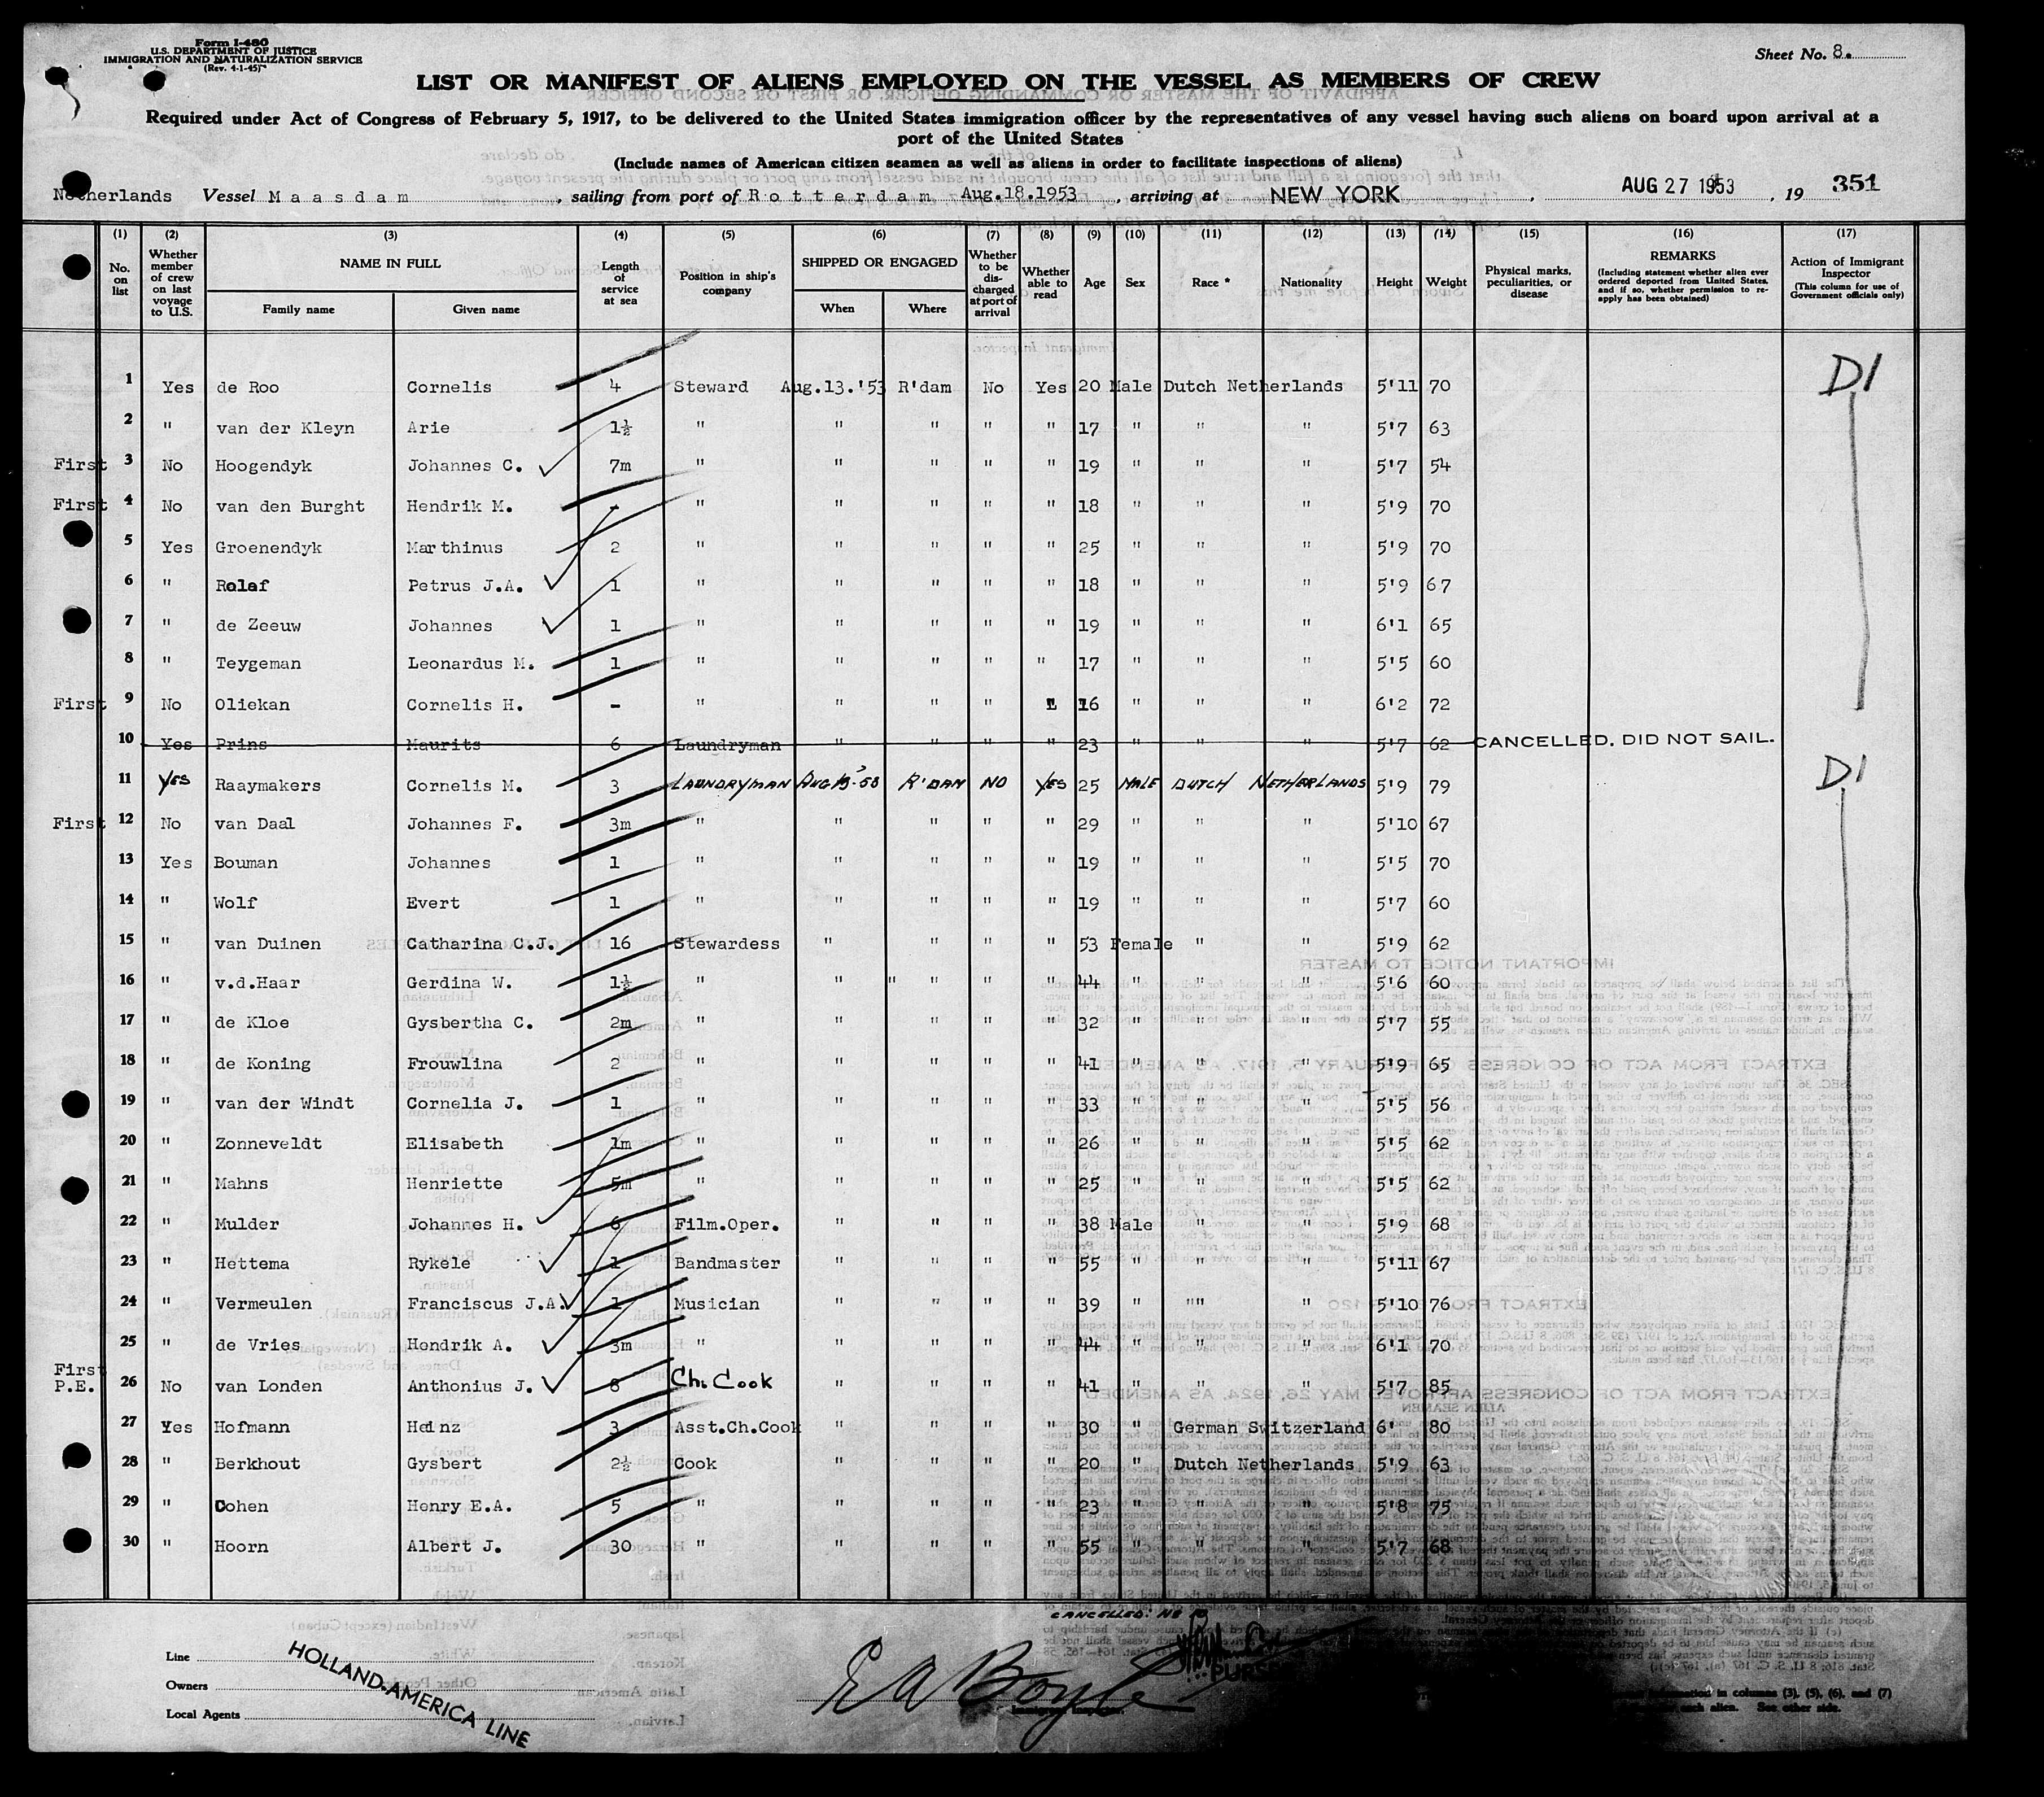 Form I-480
U.S. DEPARTMENT OF JUSTICE
IMMIGRATION AND NATURALIZATION SERVICE
(Rev. 4-1-45)
Sheet No. 8.
LIST OR MANIFEST OF ALIENS EMPLOYED ON THE VESSEL AS MEMBERS OF CREW
Required under Act of Congress of February 5, 1917, to be delivered to the United States immigration officer by the representatives of any vessel having such aliens on board upon arrival at a
port of the United States
(Include names of American citizen seamen as well as aliens in order to facilitate inspections of aliens)
Netherlands Vessel Maasdam, sailing from port of Rotterdam Aug.18.1953, arriving at NEW YORK, AUG 27 1953, 19 351
(1) (2) (3) (4) (5) (6) (7) (8) (9) (10) (11) (12) (13) (14) (15) (16) (17)
No. on list
Whether member of crew on last voyage to U.S.
NAME IN FULL
Family name Given name
Length of service at sea
Position in ship's company
SHIPPED OR ENGAGED
When Where
Whether to be discharged at port of arrival
Whether able to read
Age Sex Race * Nationality Height Weight
Physical marks, peculiarities, or disease
REMARKS
(Including statement whether alien ever ordered deported from United States, and if so, whether permission to reapply has been obtained)
Action of Immigrant Inspector
(This column for use of Government officials only)
1 Yes de Roo Cornelis 4 Steward Aug.13.'53 R'dam No Yes 20 Male Dutch Netherlands 5'11 70 D1
2 " van der Kleyn Arie 1½ " " " " " 17 " " " 5'7 63
First 3 No Hoogendyk Johannes C. 7m " " " " " 19 " " " 5'7 54
First 4 No van den Burght Hendrik M. - " " " " " 18 " " " 5'9 70
5 Yes Groenendyk Marthinus 2 " " " " " 25 " " " 5'9 70
6 " Rolaf Petrus J.A. 1 " " " " " 18 " " " 5'9 67
7 " de Zeeuw Johannes 1 " " " " " 19 " " " 6'1 65
8 " Teygeman Leonardus M. 1 " " " " " 17 " " " 5'5 60
First 9 No Oliekan Cornelis H. - " " " " 16 " " " 6'2 72
10 Yes Prins Maurits 6 Laundryman " " " " 23 " " " 5'7 62 CANCELLED. DID NOT SAIL.
11 YES Raaymakers Cornelis M. 3 LAUNDRYMAN AUG 13-'53 R'DAM NO YES 25 MALE DUTCH NETHERLANDS 5'9 79 D1
First 12 No van Daal Johannes F. 3m " " " " " 29 " " " 5'10 67
13 Yes Bouman Johannes 1 " " " " " 19 " " " 5'5 70
14 " Wolf Evert 1 " " " " " 19 " " " 5'7 60
15 " van Duinen Catharina C.J. 16 Stewardess " " " " 53 Female " " 5'9 62
16 " v.d.Haar Gerdina W. 1½ " " " " " " 44 " " " 5'6 60
17 " de Kloe Gysbertha C. 2m " " " " " 32 " " " 5'7 55
18 " de Koning Frouwlina 2 " " " " " 41 " " " 5'9 65
19 " van der Windt Cornelia J. 1 " " " " " 33 " " " 5'5 56
20 " Zonneveldt Elisabeth 1m " " " " " 26 " " " 5'5 62
21 " Mahns Henriette 5m " " " " " 25 " " " 5'5 62
22 " Mulder Johannes H. 6 Film.Oper. " " " " 38 Male " " 5'9 68
23 " Hettema Rykele 1 Bandmaster " " " " 55 " " " 5'11 67
24 " Vermeulen Franciscus J.A. 1 Musician " " " " 39 " "" " 5'10 76
25 " de Vries Hendrik A. 3m " " " " " 44 " " " 6'1 70
First P.E. 26 No van Londen Anthonius J. 8 Ch. Cook " " " " 41 " " " 5'7 85
27 Yes Hofmann Heinz 3 Asst.Ch.Cook " " " " 30 " German Switzerland 6' 80
28 " Berkhout Gysbert 2½ Cook " " " " 20 " Dutch Netherlands 5'9 63
29 " Cohen Henry E.A. 5 " " " " " 23 " " " 5'8 75
30 " Hoorn Albert J. 30 " " " " " 55 " " " 5'7 68
CANCELLED: NE 10
Line
Owners
Local Agents
HOLLAND-AMERICA LINE
E A Boyle
PURSER
Immigrant Inspector.
in columns (3), (5), (6), and (7)
such alien. See other side.